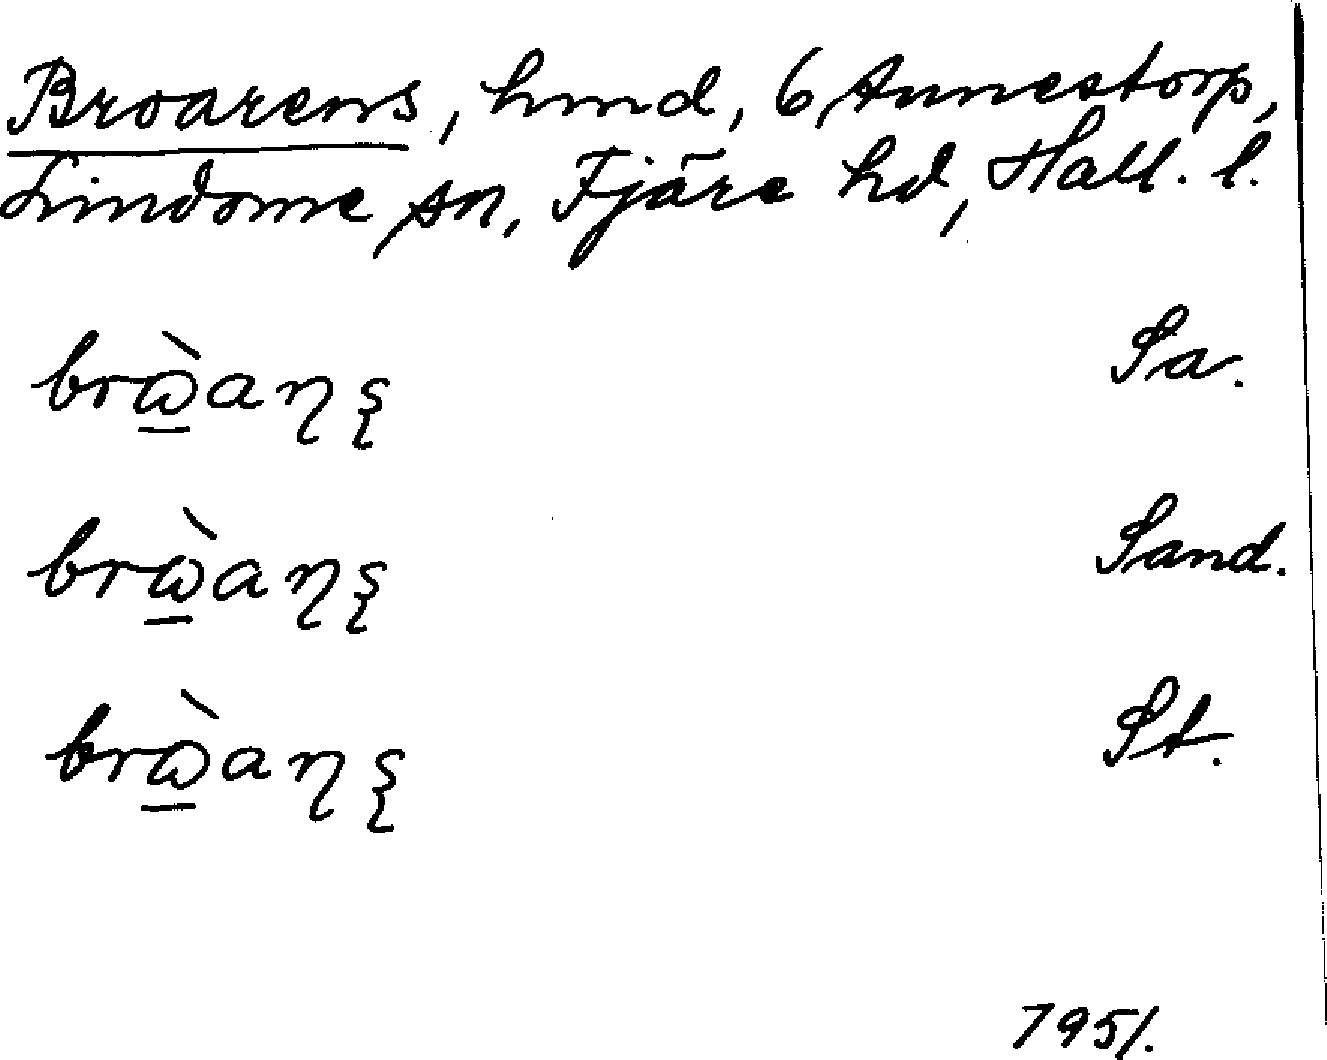 Broarens, hmd, 6 Annestorp,
Lindome sn, Fjäre hd, Hall. l.
brὼ̲aɳʂ Sa.
brὼ̲aɳʂ Sand.
brὼ̲aɳʂ St.
7951.